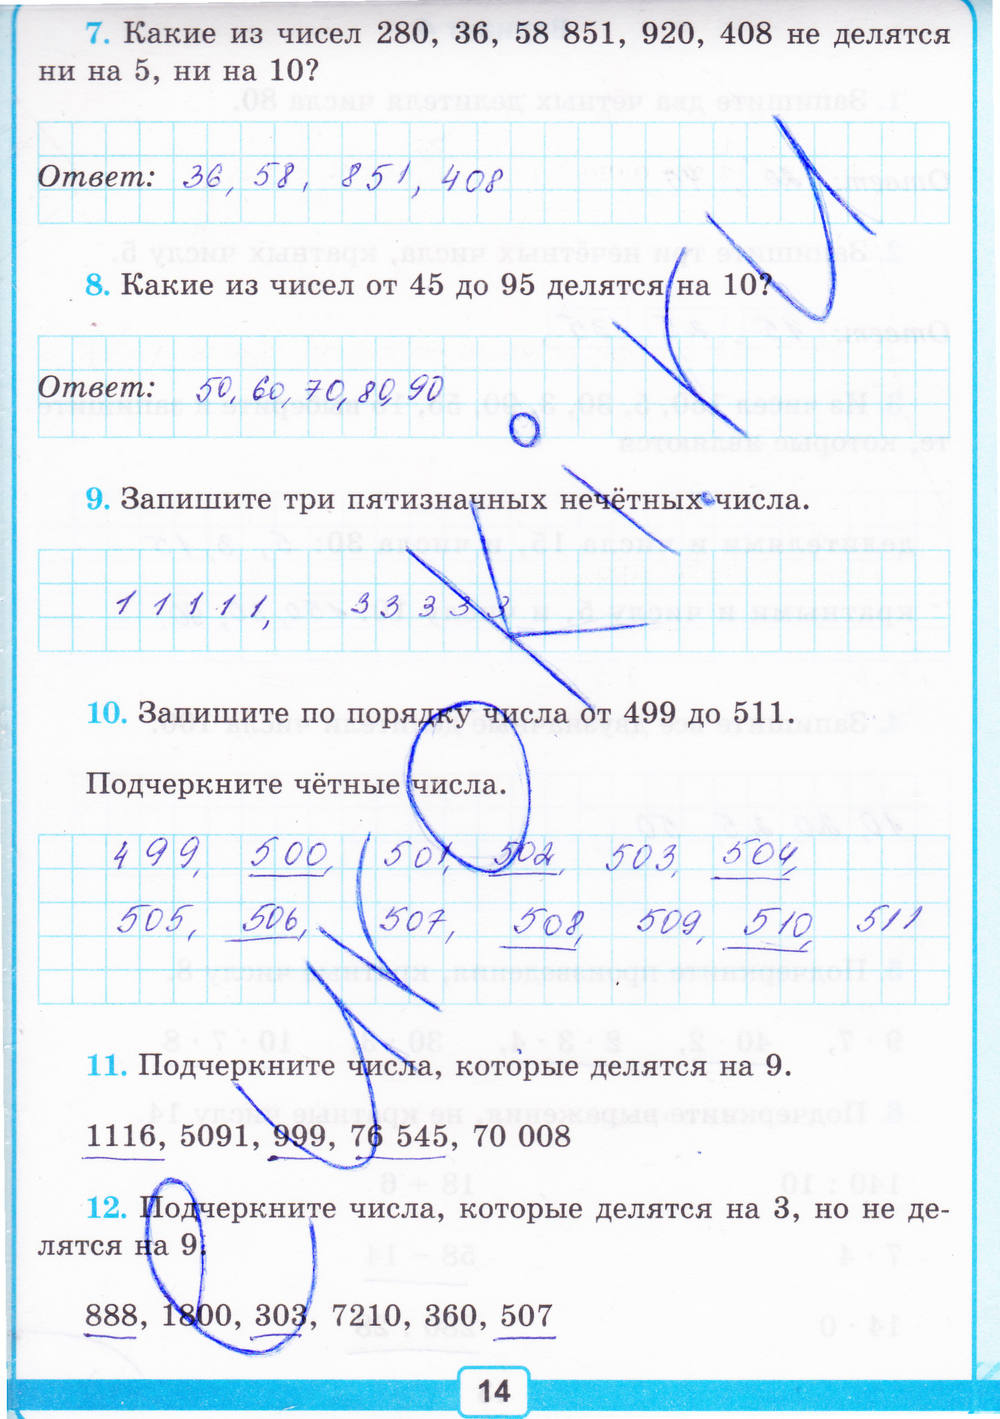 7. Какие из чисел 280, 36, 58 851, 920, 408 не делятся
ни на 5, ни на 10?
Ответ: 36, 58, 851, 408
8. Какие из чисел от 45 до 95 делятся на 10?
Ответ: 50, 60, 70, 80, 90
9. Запишите три пятизначных нечётных числа.
11111, 33333
10. Запишите по порядку числа от 499 до 511.
Подчеркните чётные числа.
499, 500, 501, 502, 503, 504,
505, 506, 507, 508, 509, 510, 511
11. Подчеркните числа, которые делятся на 9.
1116, 5091, 999, 76 545, 70 008
12. Подчеркните числа, которые делятся на 3, но не де-
лятся на 9.
888, 1800, 303, 7210, 360, 507
14